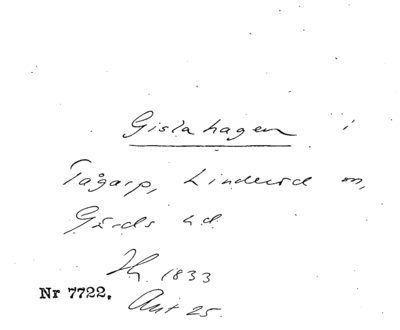 Gislahagen i
Tågarp, Linderöd sn,
Gärds hd
Th. 1833
Nr 7722.
Ant 25.